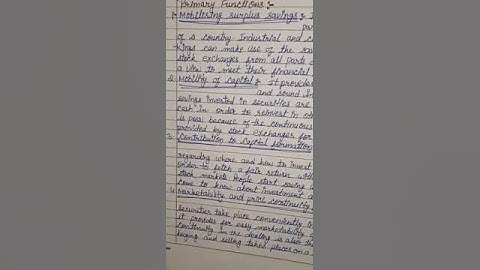 Primary Functions :-
1. Mobilising surplus savings :
of a country Industrial and c
can make use of the sa
stock exchanges from all parts o
a view to meet their financial
2. Mobility of capital : It provides
and sound in
savings invested in securities are
cash in order to reinvest in ot
is poss because of the continuous
provided by stock exchanges for
3. Contribution to Capital formation
regarding where and how to invest
order to fetch a fair return with
stock markets People start saving
come to know about investment o
4. Marketability and price continuity
securities take place conveniently
it provides for easy marketability
continuity in the dealing is also
buying and selling takes places on a